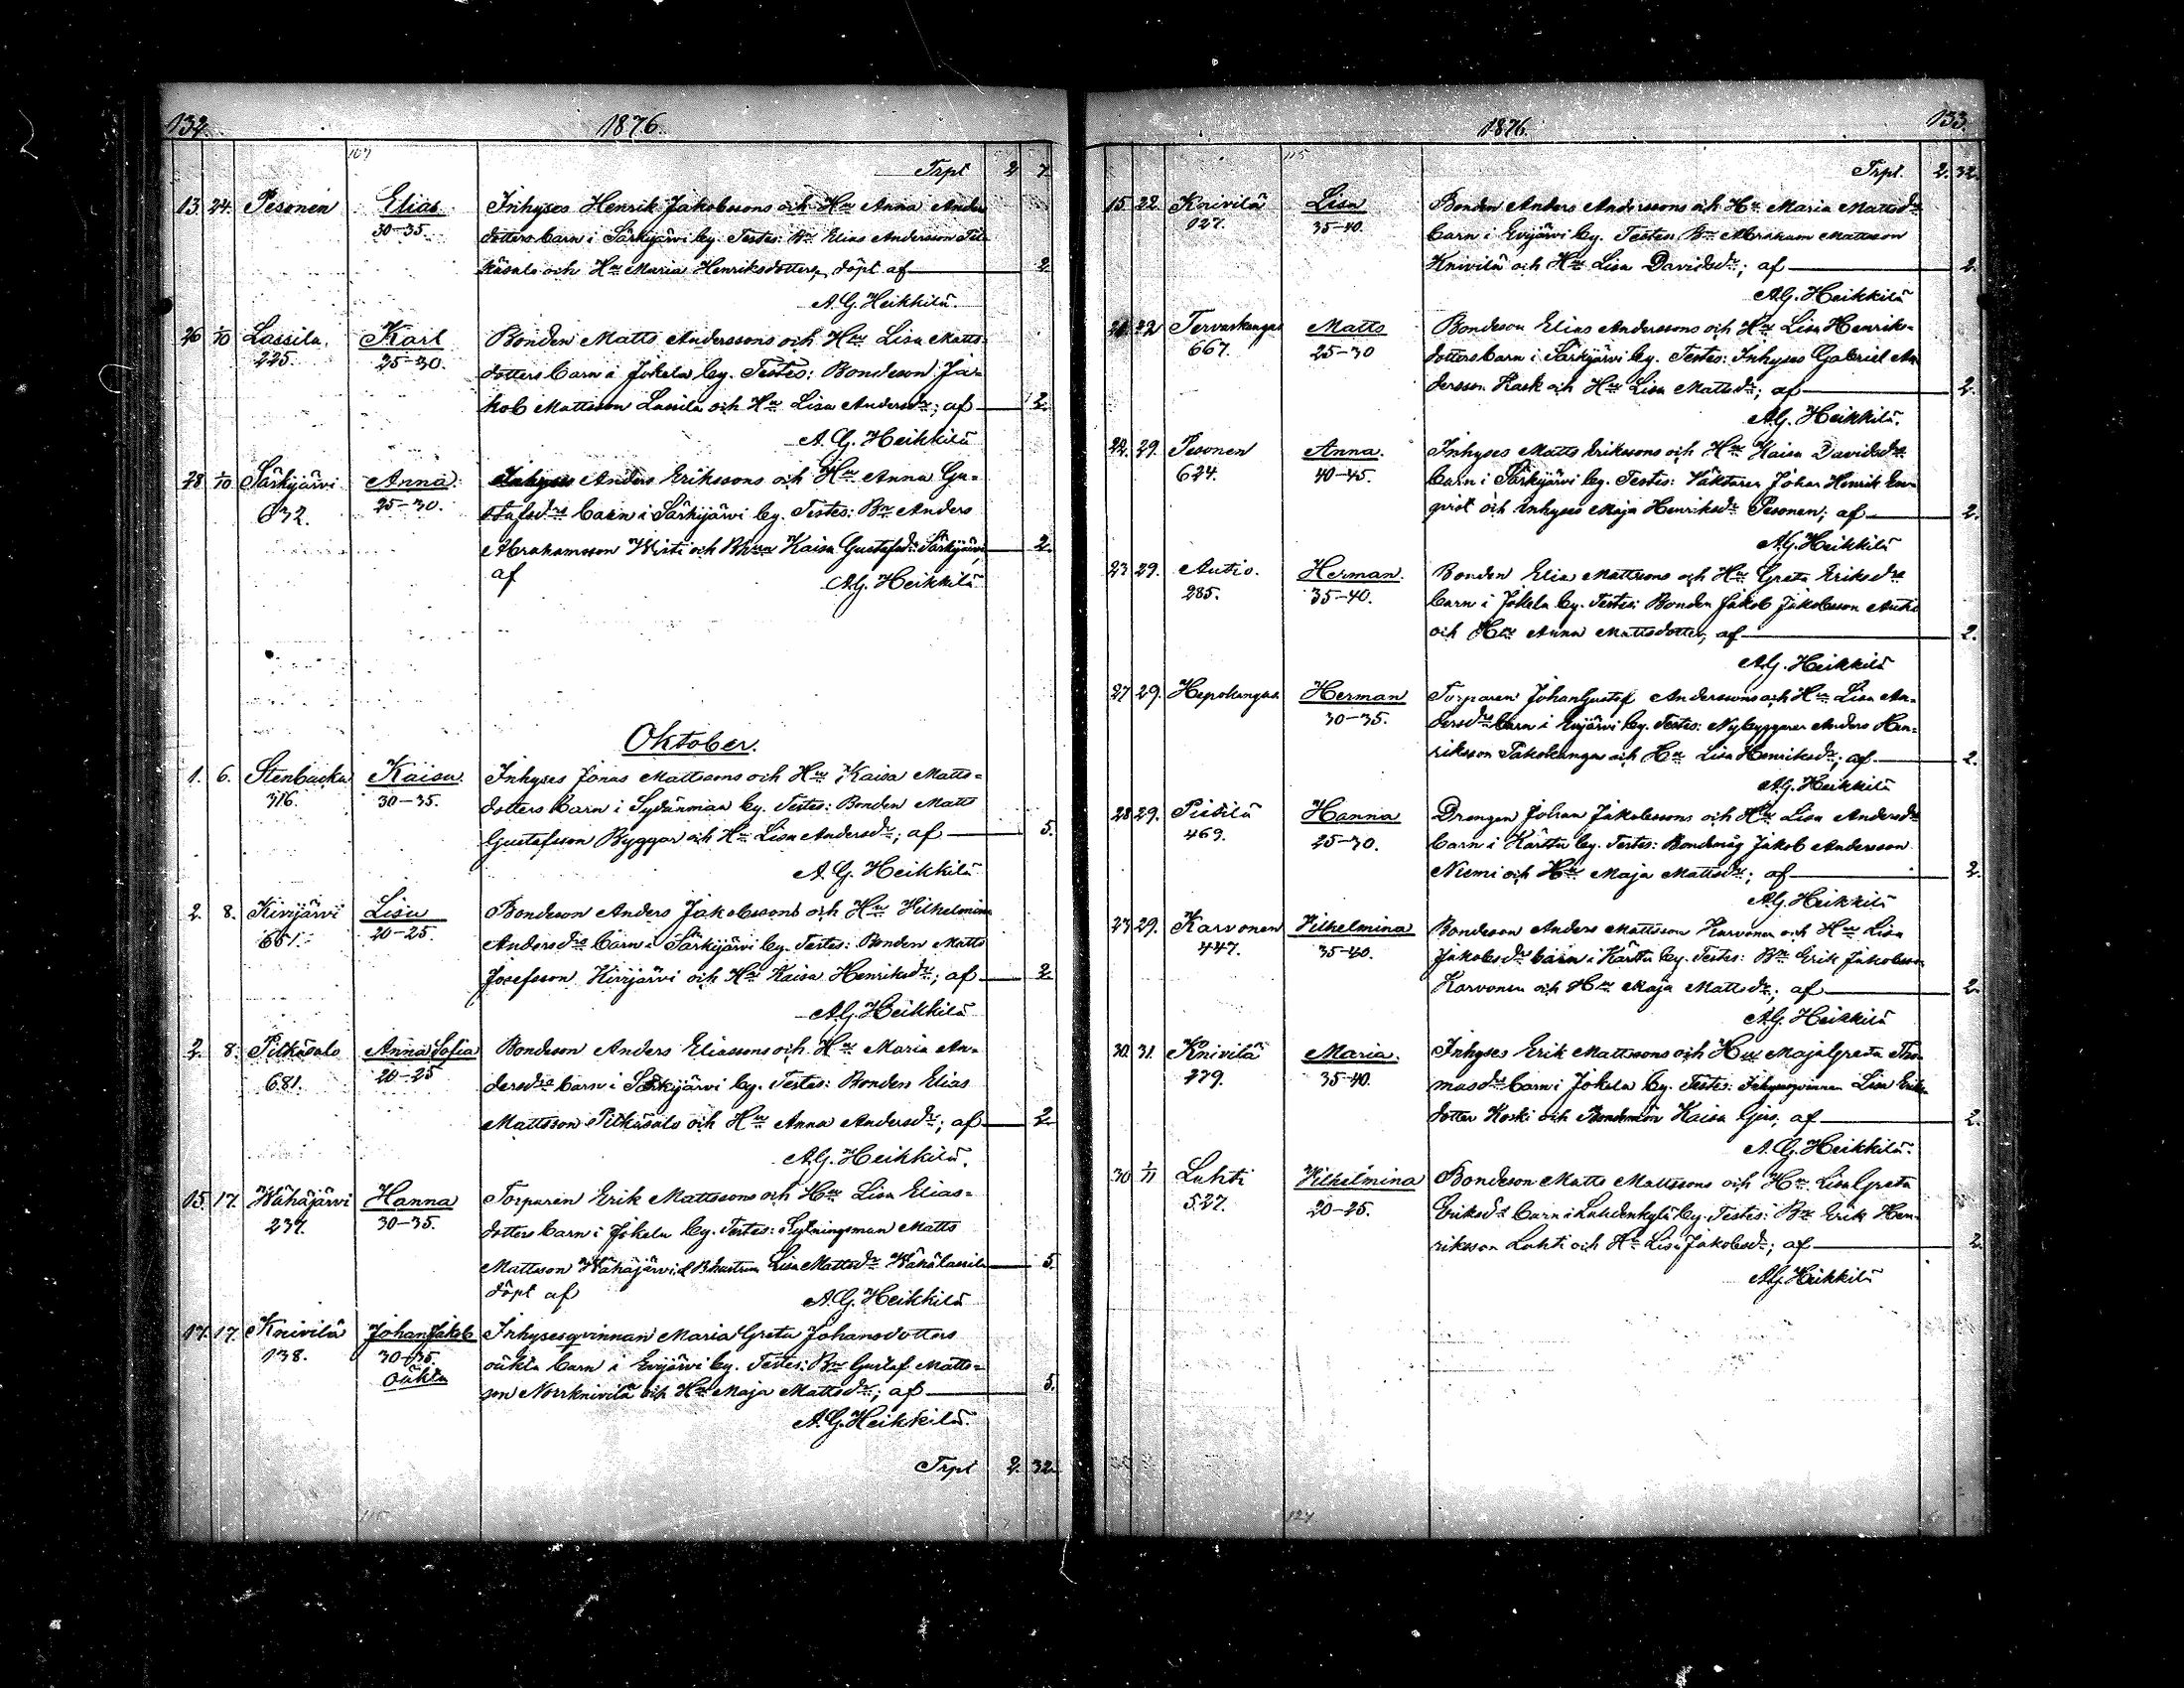 132. 1876.
107
Trpt 2 7
13. 24. Pesonen Elias Inhyses Henrik Jakobssons och Hu Anna Anders
30–35. dotters barn i Särkijärvi by. Testes: Bn Elias Andersson Pit
käsalo och Hu Maria Henriksdotter, döpt af 2
A. G. Heikkilä.
26 1/10 Lassila. Karl Bonden Matts Anderssons och Hu Lisa Matts-
225. 25–30. dotters barn i Jokela by. Testes: Bondeson Ja-
kob Mattsson Lassila och Hu Lisa Andersdr; af 2.
A. G. Heikkilä
28 1/10 Särkijärvi Anna Inhyses Anders Erikssons och Hu Anna Gu-
632. 25–30. stafsdrs barn i Särkijärvi by. Testes: Bn Anders
Abrahamsson Wisti och Kaisa Gustafsdr Särkijärvi 2.
af A.G. Heikkilä
Oktober.
1. 6. Stenbacka Kaisa Inhyses Jonas Mattssons och Hu Kaisa Matts-
316. 30–35. dotters barn i Sydänmaa by. Testes: Bonden Matts
Gustafsson Byggar och Hu Lisa Andersdr; af 5.
A. G. Heikkilä
2. 8. Kivijärvi Lisa Bondeson Anders Jakobssons och Hu Vilhelmina
651. 20–25. Andersdrs barn i Särkijärvi by. Testes: Bonden Matts
Josefsson Kivijärvi och Hu Kaisa Henriksdr; af 2
A.G. Heikkilä
2. 8. Pitkäsalo Anna Sofia Bondeson Anders Eliassons och Hu Maria An-
681. 20–25 dersdrs barn i Särkijärvi by. Testes: Bonden Elias
Mattsson Pitkäsalo och Hu Anna Andersdr; af 2
A.G. Heikkilä.
15. 17. Wähäjärvi Hanna Torparen Erik Mattssons och Hu Lisa Elias-
237. 30–35. dotters barn i Jokela by. Testes: Sytningsman Matts
Mattsson Wähäjärvi & Bhustrun Lisa Mattsdr Wähälassila 5.
döpt af A.G. Heikkilä
17. 17. Knivilä Johan Jakob Inhysesqvinnan Maria Greta Johansdotters
138. 30–35. oäkta barn i Evijärvi by. Testes: Bn Gustaf Matts-
Oäkta son Norrknivilä och Hu Maja Mattsdr; af 5.
A.G. Heikkilä.
Trpt 2. 32.
115
1876. 133.
115
Trpt. 2. 32.
15 22. Knivilä Lisa Bonden Anders Anderssons och Hu Maria Mattsdrs
127. 35–40. barn i Evijärvi by. Testes: Bn Abraham Mattsson
Knivilä och Hu Lisa Davidsdr; af 2.
A.G. Heikkilä
22 Tervaskangas Matts Bondeson Elias Anderssons och Hu Lisa Henriks-
667. 25–30 dotters barn i Särkijärvi by. Testes: Inhyses Gabriel An
dersson Rask och Hu Lisa Mattsdr; af 2.
A.G. Heikkilä.
22. 29. Pesonen Anna. Inhyses Matts Erikssons och Hu Kaisa Davidsdrs
624. 40–45. barn i Särkijärvi by. Testes: Johan Henrik En-
qvist och Inhyses Maja Henriksdr Pesonen; af 2.
A.G. Heikkilä
23 29. Autio. Herman. Bonden Elia Mattssons och Hu Greta Eriksdrs
285. 35–40. barn i Jokela by. Testes: Bonden Jakob Jakobsson Autio
och Hu Anna Mattsdotter, af 2.
A.G. Heikkilä
27 29. Hepokangas Herman Torparen Johan Gustaf Anderssons och Hu Lisa An-
30–35. dersdrs barn i Evijärvi by. Testes: Nybyggaren Anders Hen-
riksson och Hu Lisa Henriksdr; af 2.
A.G. Heikkilä
28 29. Pietilä Hanna Drengen Johan Jakobssons och Hu Lisa Andersdrs
469. 25–30. barn i Kärttu by. Testes: Bondmåg Jakob Andersson
Niemi och Hu Maja Mattsdr; af 2.
A.G. Heikkilä
27 29. Karvonen Vilhelmina Bondeson Anders Mattsson Karvonen och Hu Lisa
447. 35–40. Jakobsdrs barn i Kärttu by. Testes: Bn Erik Jakobsson
Karvonen och Hu Maja Mattsdr; af 2.
A.G. Heikkilä
30. 31. Knivilä Maria. Inhyses Erik Mattssons och Hu Maja Greta Tho-
279. 35–40. masdrs barn i Jokela by. Testes: Inhysesqvinnan Lisa Eriks
dotter Koski och Kaisa af 2.
A.G. Heikkilä.
30 1/11 Luhti Vilhelmina Bondeson Matts Mattssons och Hu Lisa Greta
527. 20–25. Eriksdrs barn i Lahdenkylä by. Testes: Bn Erik Hen-
riksson Luhti och Hu Lisa Jakobsdr; af 2.
A.G. Heikkilä
127